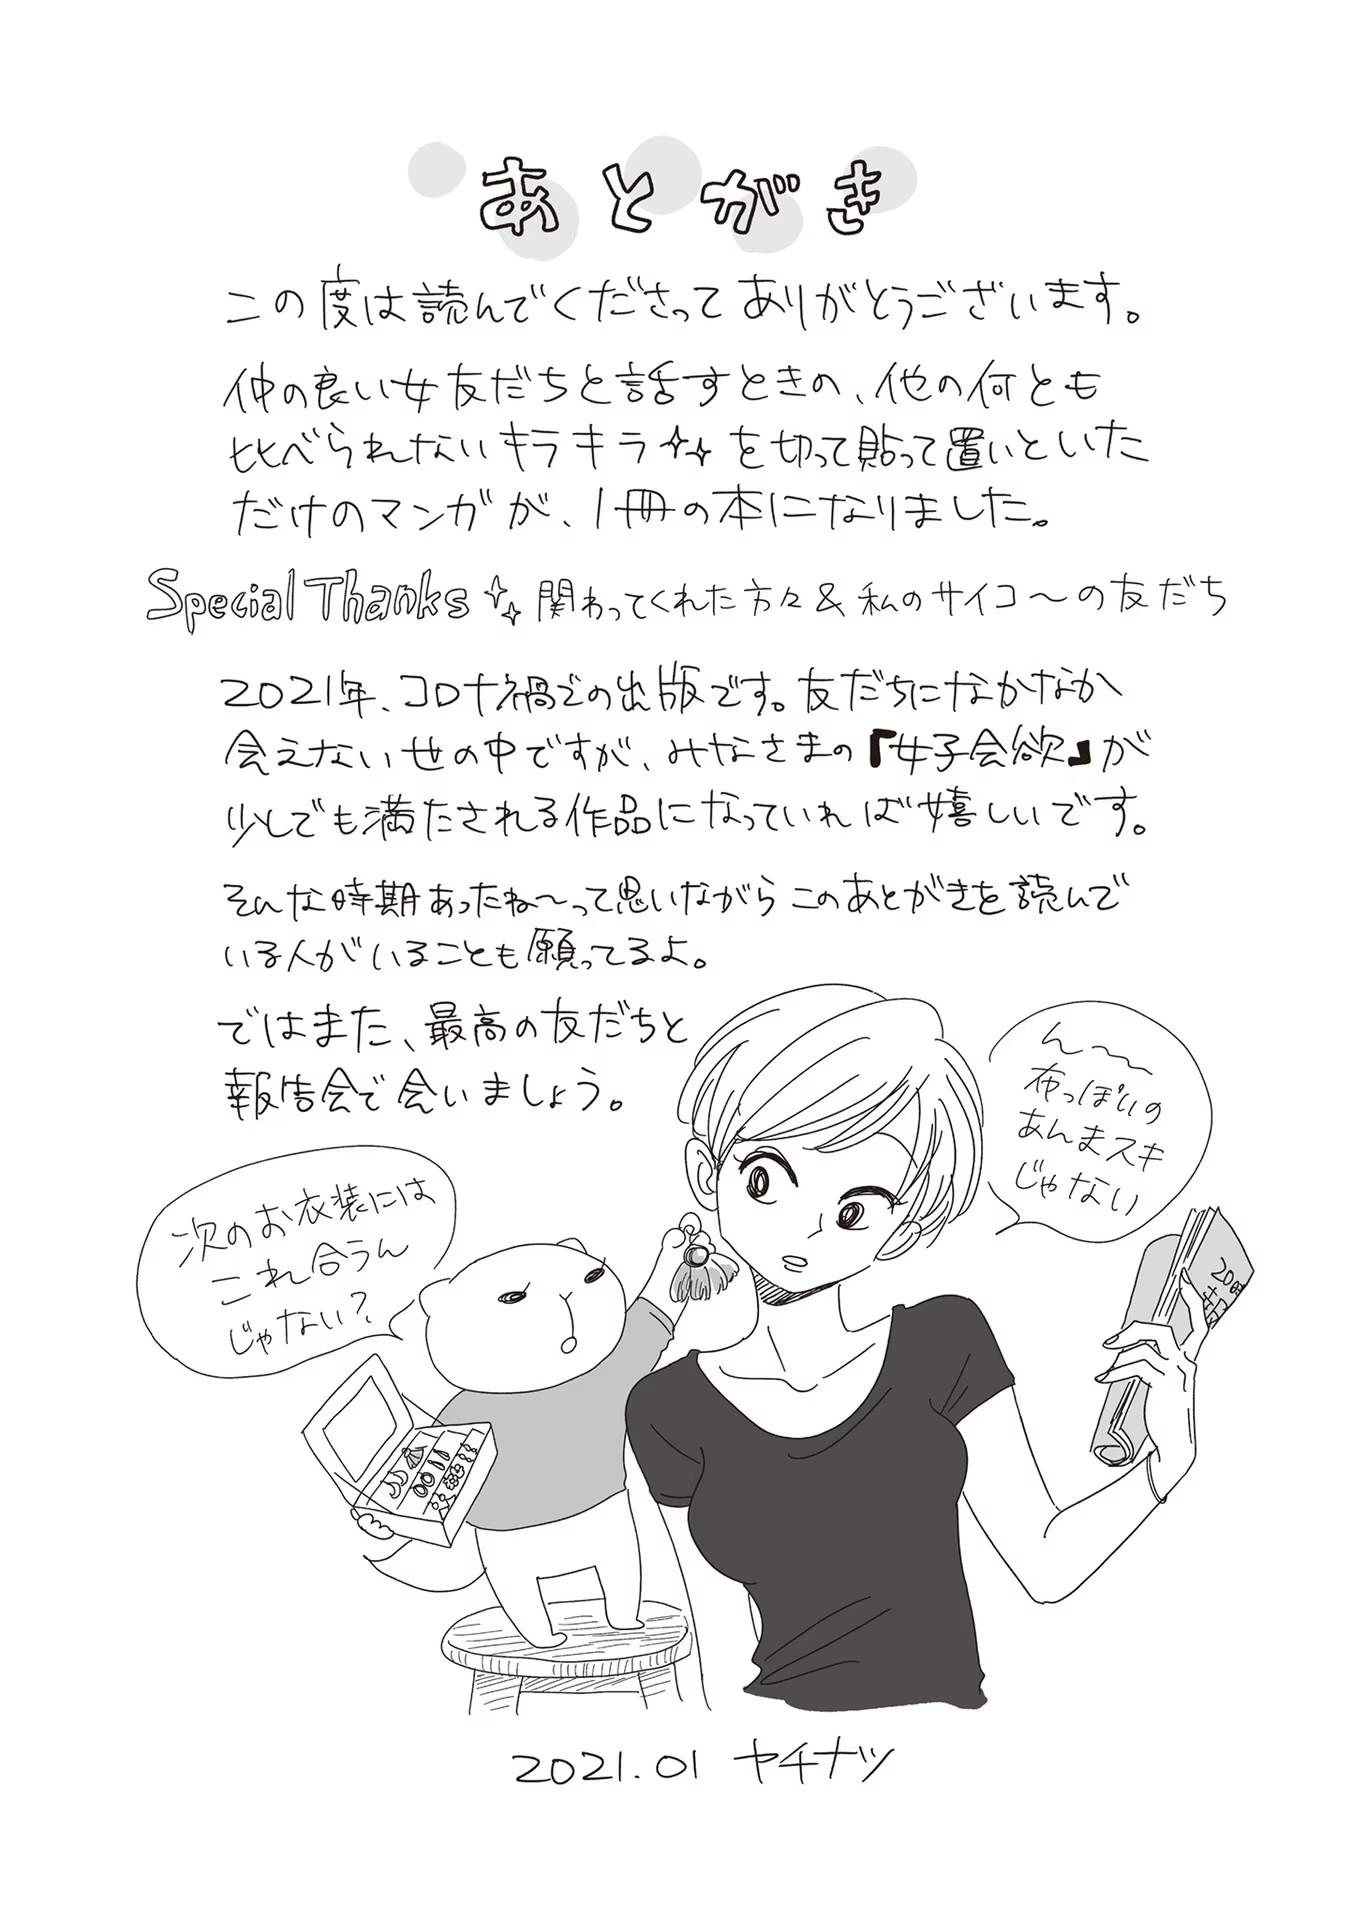 あとがき
この度は読んでくださってありがとうございます。
仲の良い女友だちと話すときの、他の何とも
比べられないキラキラを切って貼って置いといた
だけのマンガが、1冊の本になりました。
Special Thanks 関わってくれた方々&私のサイコ〜の友だち
2021年、コロナ禍での出版です。友だちになかなか
会えない世の中ですが、みなさまの『女子会欲』が
少しでも満たされる作品になっていれば嬉しいです。
そんな時期あったね〜って思いながらこのあとがきを読んで
いる人がいることも願ってるよ。
ではまた、最高の友だちと
報告会で会いましょう。
ん〜
布っぽいの
あんまスキ
じゃない
次のお衣装には
これ合うん
じゃない?
2021.01 ヤチナツ